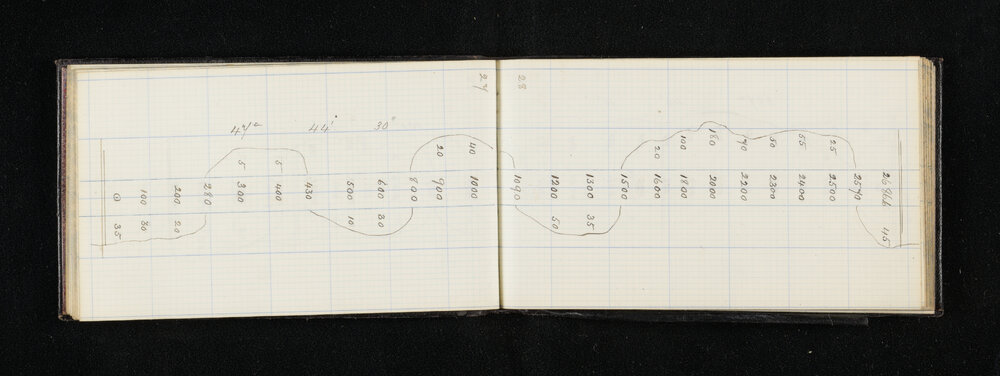 27
44' 30"
0 35
100 30
200 20
280
5 300
5 400
430
500 10
600 30
800
20 900
40 1000
28
1090
1200 50
1300 35
1500
20 1600
100 1800
180 2000
2200
50 2300
55 2400
25 2500
2570
45